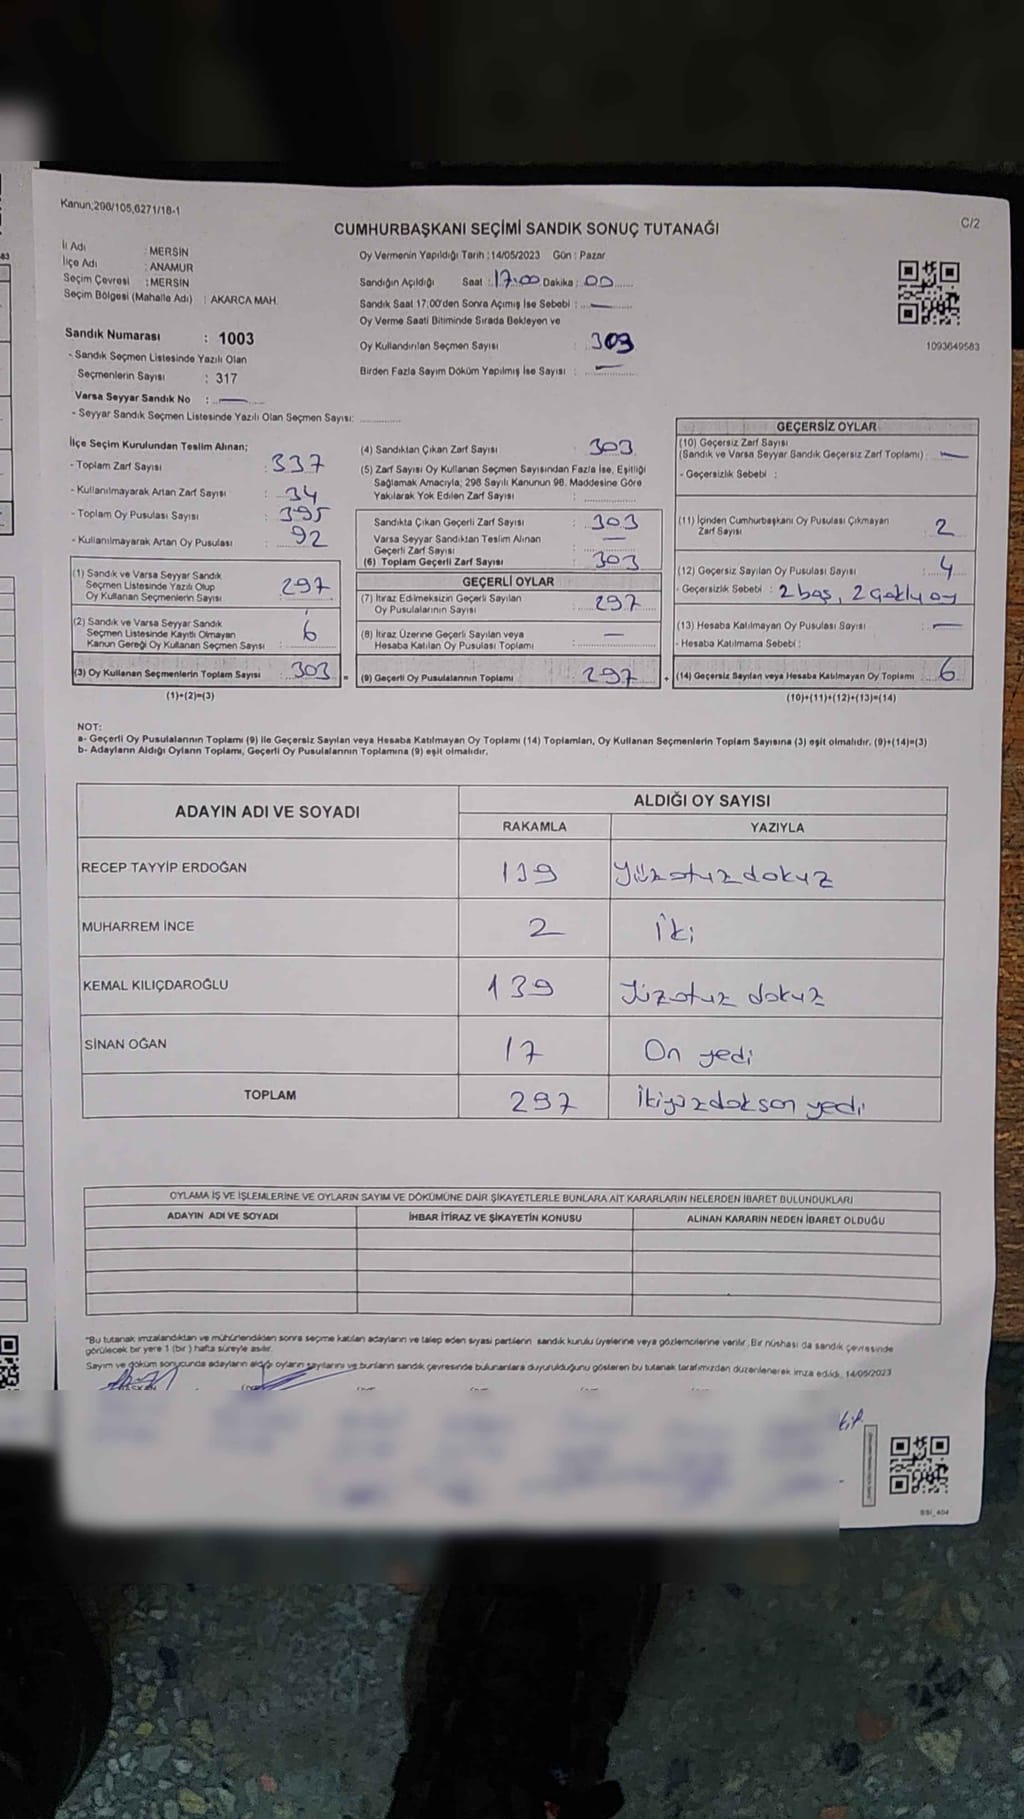 Kanun;298/105,6271/18-1
C/2
CUMHURBAŞKANI SEÇİMİ SANDIK SONUÇ TUTANAĞI
İl Adı : MERSİN
İlçe Adı : ANAMUR
Seçim Çevresi : MERSİN
Seçim Bölgesi (Mahalle Adı) : AKARCA MAH.
Sandık Numarası : 1003
- Sandık Seçmen Listesinde Yazılı Olan
Seçmenlerin Sayısı : 317
Varsa Seyyar Sandık No : —
- Seyyar Sandık Seçmen Listesinde Yazılı Olan Seçmen Sayısı: ..........
Oy Vermenin Yapıldığı Tarih : 14/05/2023 Gün : Pazar
Sandığın Açıldığı Saat : 17:00 Dakika : 00
Sandık Saat 17.00'den Sonra Açımış İse Sebebi : —
Oy Verme Saati Bitiminde Sırada Bekleyen ve
Oy Kullandırılan Seçmen Sayısı : 303
Birden Fazla Sayım Döküm Yapılmış İse Sayısı : —
1093649583
İlçe Seçim Kurulundan Teslim Alınan;
- Toplam Zarf Sayısı : 337
- Kullanılmayarak Artan Zarf Sayısı : 34
- Toplam Oy Pusulası Sayısı : 395
- Kullanılmayarak Artan Oy Pusulası : 92
(1) Sandık ve Varsa Seyyar Sandık
Seçmen Listesinde Yazılı Olup
Oy Kullanan Seçmenlerin Sayısı : 297
(2) Sandık ve Varsa Seyyar Sandık
Seçmen Listesinde Kayıtlı Olmayan
Kanun Gereği Oy Kullanan Seçmen Sayısı : 6
(3) Oy Kullanan Seçmenlerin Toplam Sayısı : 303 =
(1)+(2)=(3)
(4) Sandıktan Çıkan Zarf Sayısı : 303
(5) Zarf Sayısı Oy Kullanan Seçmen Sayısından Fazla İse, Eşitliği
Sağlamak Amacıyla; 298 Sayılı Kanunun 98. Maddesine Göre
Yakılarak Yok Edilen Zarf Sayısı : ..........
Sandıkta Çıkan Geçerli Zarf Sayısı : 303
Varsa Seyyar Sandıktan Teslim Alınan
Geçerli Zarf Sayısı : —
(6) Toplam Geçerli Zarf Sayısı : 303
GEÇERLİ OYLAR
(7) İtiraz Edilmeksizin Geçerli Sayılan
Oy Pusulalarının Sayısı : 297
(8) İtiraz Üzerine Geçerli Sayılan veya
Hesaba Katılan Oy Pusulası Toplamı : —
(9) Geçerli Oy Pusulalarının Toplamı : 297 +
GEÇERSİZ OYLAR
(10) Geçersiz Zarf Sayısı
(Sandık ve Varsa Seyyar Sandık Geçersiz Zarf Toplamı) : —
- Geçersizlik Sebebi :
(11) İçinden Cumhurbaşkanı Oy Pusulası Çıkmayan
Zarf Sayısı : 2
(12) Geçersiz Sayılan Oy Pusulası Sayısı : 4
- Geçersizlik Sebebi : 2 boş, 2 çoklu oy
(13) Hesaba Katılmayan Oy Pusulası Sayısı : —
- Hesaba Katılmama Sebebi :
(14) Geçersiz Sayılan veya Hesaba Katılmayan Oy Toplamı : 6
(10)+(11)+(12)+(13)=(14)
NOT:
a- Geçerli Oy Pusulalarının Toplamı (9) ile Geçersiz Sayılan veya Hesaba Katılmayan Oy Toplamı (14) Toplamları, Oy Kullanan Seçmenlerin Toplam Sayısına (3) eşit olmalıdır. (9)+(14)=(3)
b- Adayların Aldığı Oyların Toplamı, Geçerli Oy Pusulalarının Toplamına (9) eşit olmalıdır.
ADAYIN ADI VE SOYADI ALDIĞI OY SAYISI
RAKAMLA YAZIYLA
RECEP TAYYİP ERDOĞAN 139 Yüzotuzdokuz
MUHARREM İNCE 2 İki
KEMAL KILIÇDAROĞLU 139 Yüzotuz dokuz
SİNAN OĞAN 17 On yedi
TOPLAM 297 İkiyüzdoksan yedi
OYLAMA İŞ VE İŞLEMLERİNE VE OYLARIN SAYIM VE DÖKÜMÜNE DAİR ŞİKAYETLERLE BUNLARA AİT KARARLARIN NELERDEN İBARET BULUNDUKLARI
ADAYIN ADI VE SOYADI İHBAR İTİRAZ VE ŞİKAYETİN KONUSU ALINAN KARARIN NEDEN İBARET OLDUĞU
"Bu tutanak imzalandıktan ve mühürlendikten sonra seçime katılan adayların ve talep eden siyasi partilerin sandık kurulu üyelerine veya gözlemcilerine verilir. Bir nüshası da sandık çevresinde
görülecek bir yere 1 (bir) hafta süreyle asılır.
Sayım ve döküm sonucunda adayların aldığı oyların sayılarını ve bunların sandık çevresinde bulunanlara duyurulduğunu gösteren bu tutanak tarafımızdan düzenlenerek imza edildi. 14/05/2023